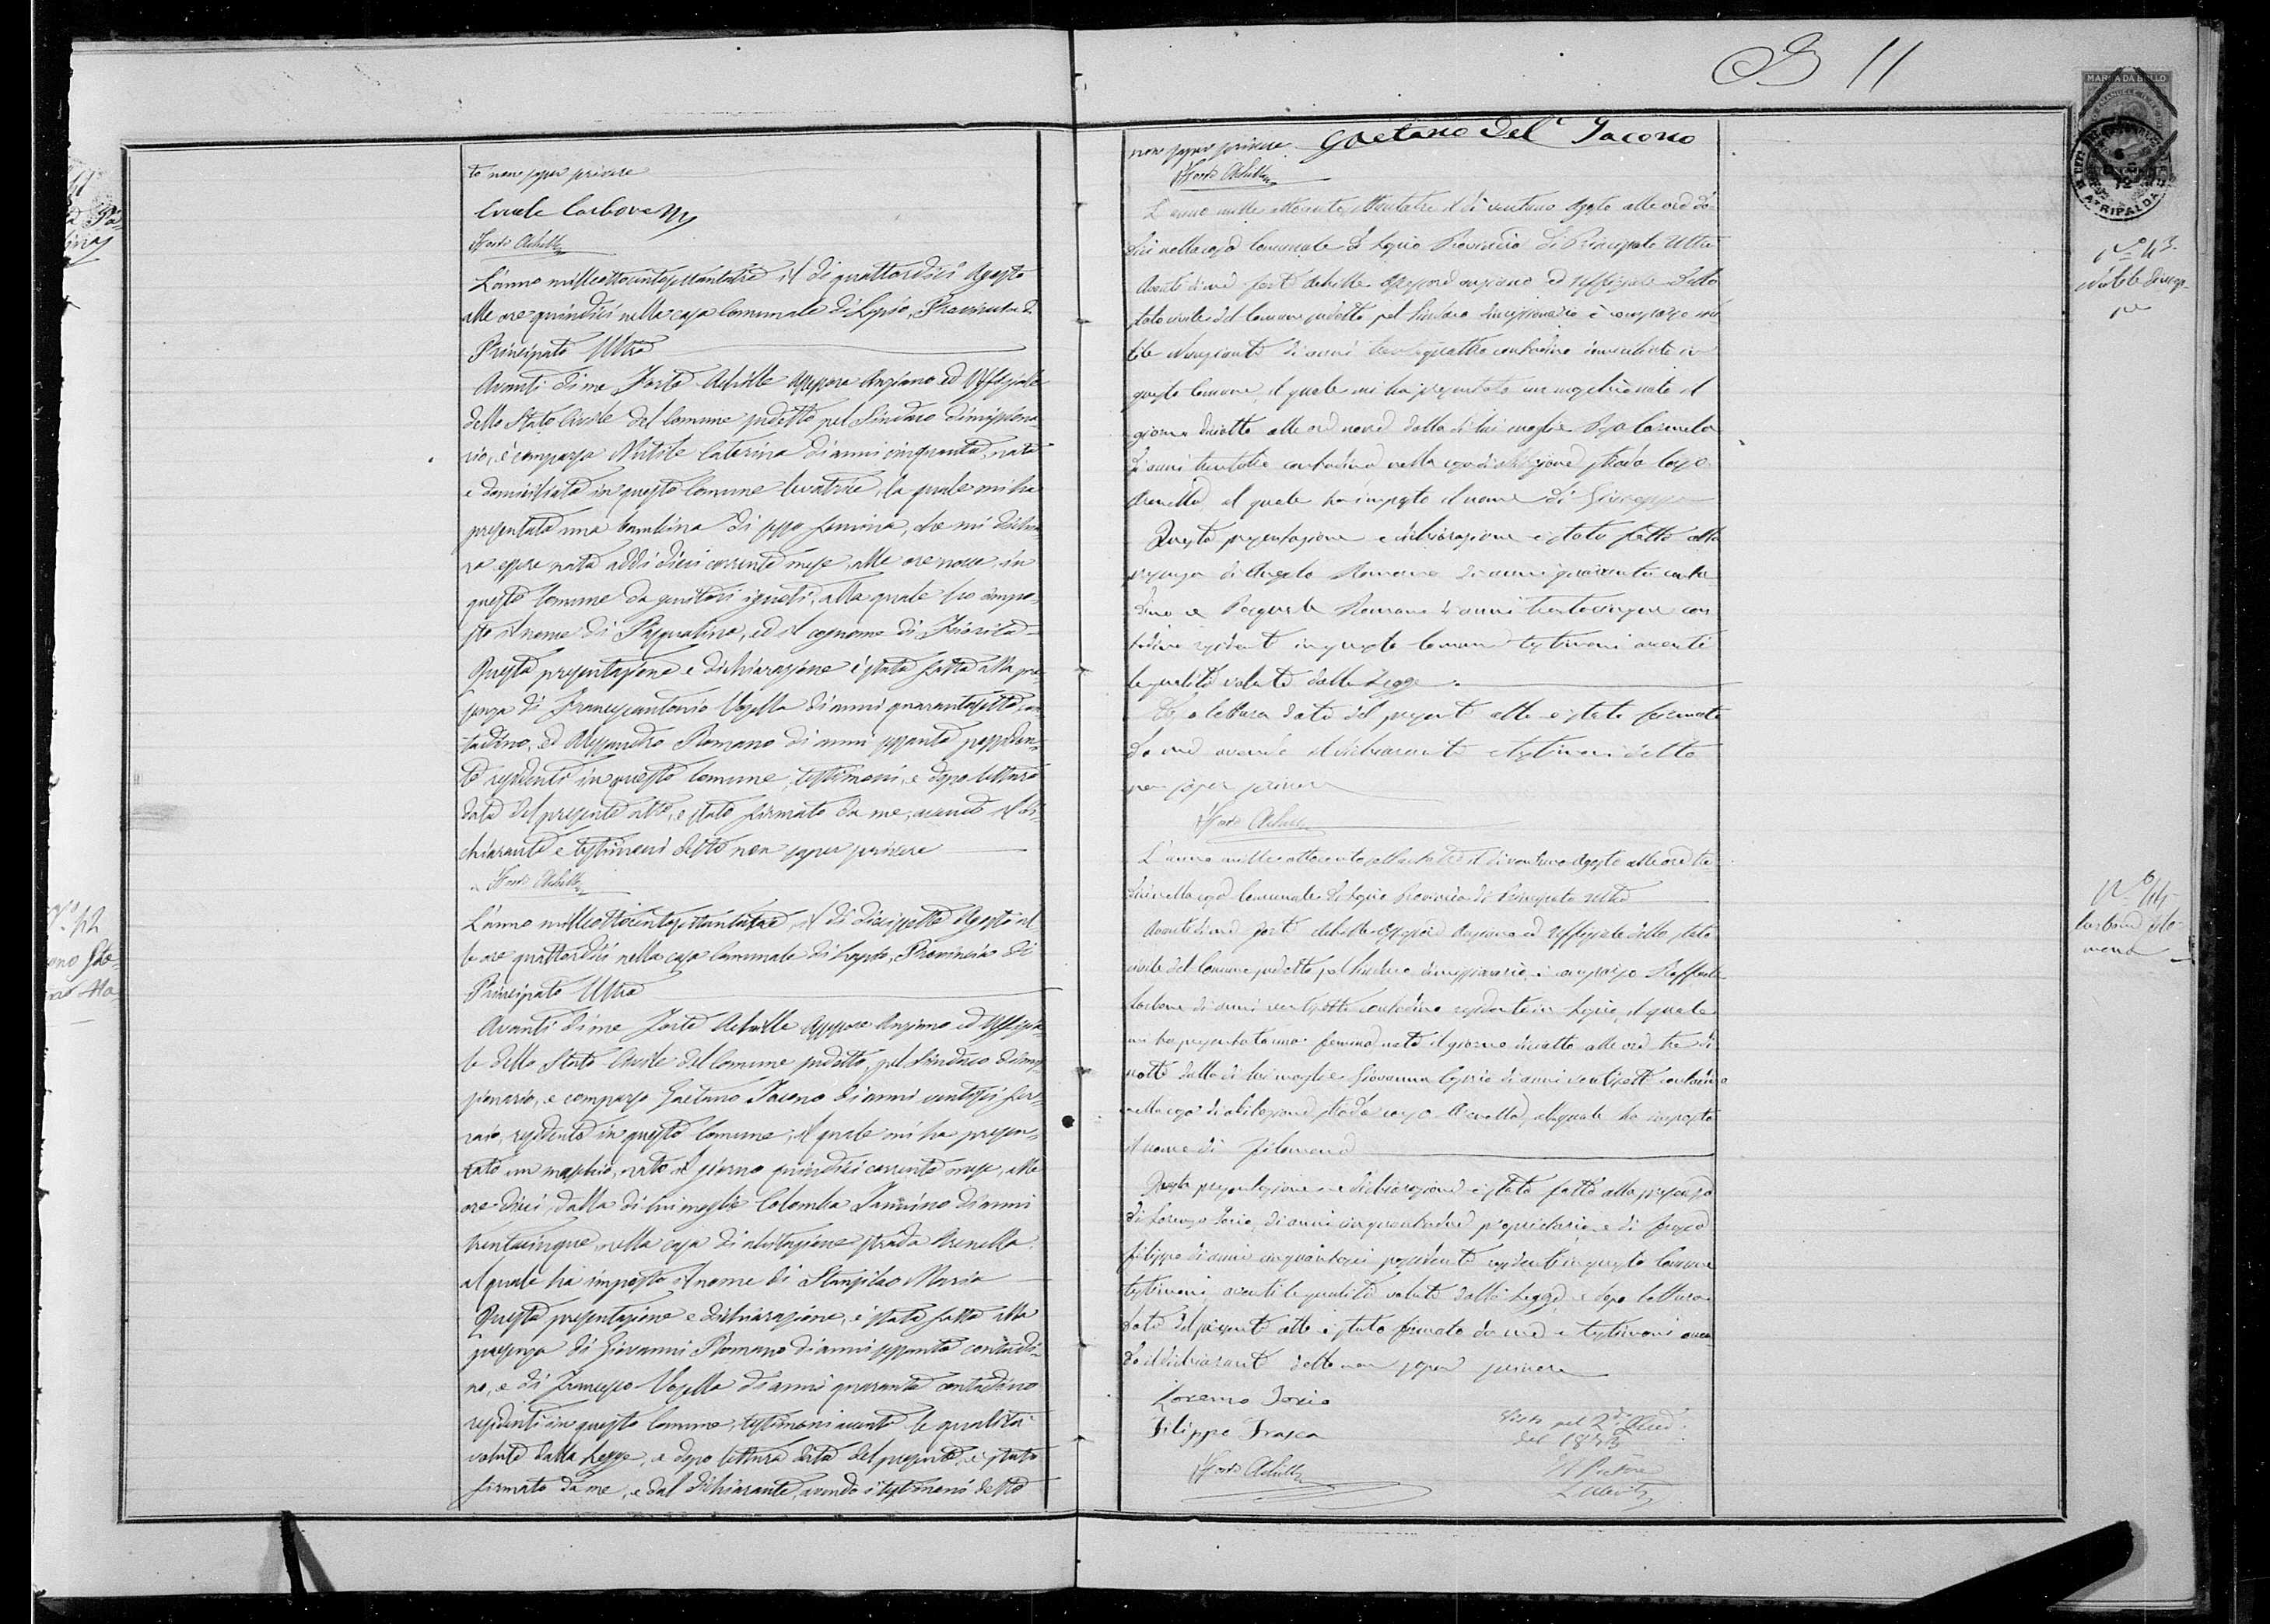 to non saper scrivere
Carbone
Forte Achille
L'anno milleottocentosettantatre il di quattordici Agosto
alle ore quindici nella casa Comunale di Lapio, Provincia di
Principato Ultra
Avanti di me Forte Achille Assessore Anziano ed Uffiziale
dello Stato Civile del Comune sudetto pel Sindaco dimissiona-
rio, è comparsa Nutile Caterina di anni cinquanta, nata
e domiciliata in questo Comune levatrice, la quale mi ha
presentata una bambina di sesso feminino, che mi dichia-
ra essere nata addi dieci corrente mese, alle ore nove, in
questo Comune da genitori ignoti, alla quale ho impo-
sto il nome di Pasqualina, ed il cognome di
Questa presentazione e dichiarazione è stata fatta alla pre-
senza di Francescantonio Vasella di anni quarantasette, con-
tadino, ed Alessandro Romano di anni sessanta possiden-
te residenti in questo Comune, testimoni, e dopo lettura
data del presente atto, è stato firmato da me, avendo il di-
chiarante e testimoni detto non saper scrivere
Forte Achille
N.° 42
L'anno milleottocentosettantatre, il di diciassette Agosto al-
le ore quattordici nella casa Comunale di Lapio, Provincia di
Principato Ultra
Avanti di me Forte Achille Assessore Anziano ed Uffizia-
le dello Stato Civile del Comune sudetto, pel Sindaco dimis-
sionario, è comparso Gaetano Iacono di anni ventisei fer-
raio, residente in questo Comune, il quale mi ha presen-
tato un maschio, nato il giorno quindici corrente mese, alle
ore dieci, dalla di lui moglie Colomba Iannino di anni
trentacinque, nella casa di abitazione strada Arenella
al quale ha imposto il nome di Stanislao Maria
Questa presentazione e dichiarazione, è stata fatta alla
presenza di Giovanni Romano di anni sessanta contadi-
no, e di Francesco Vasella di anni quaranta contadino
residenti in questo Comune, testimoni aventi le qualità
volute dalla Legge, e dopo lettura data del presente, è stato
firmato da me, e dal dichiarante, avendo i testimoni detto
11
non saper scrivere Gaetano Del Iacono
Forte Achille
MARCA DA BOLLO
ATRIPALDA
N.° 43
Nutile Giusep-
pe
L'anno mille ottocento settantatre il di ventuno Agosto alle ore do-
dici nella casa Comunale di Lapio Provincia di Principato Ultra
Avanti di me Forte Achille Assessore anziano ed Uffiziale dello
stato civile del Comune sudetto pel Sindaco dimissionario è comparso Nu-
tile Nunziante di anni trentaquattro contadino domiciliato in
questo Comune, il quale mi ha presentato un maschio nato il
giorno diciotto alle ore nove dalla di lui moglie Carmela
di anni trentatre contadina nella casa di abitazione strada
Arenella al quale ha imposto il nome di Giuseppe
Questa presentazione e dichiarazione è stata fatta alla
presenza di Angelo Romano di anni quaranta conta-
dino e Pasquale Romano di anni trentacinque con-
tadino residenti in questo Comune testimoni aventi
le qualità volute dalla Legge.
Dopo lettura data del presente atto è stato firmato
da me avendo il dichiarante e testimoni detto
non saper scrivere
Forte Achille
N.° 44
Carbone Filo-
mena
L'anno mille ottocento settantatre il di ventuno Agosto alle ore tre-
dici nella casa Comunale di Lapio Provincia di Principato Ultra
Avanti di me Forte Achille Assessore Anziano ed Uffiziale dello stato
civile del Comune sudetto pel Sindaco dimissionario, è comparso Raffaele
Carbone di anni ventisette contadino residente in Lapio, il quale
mi ha presentato una femina nata il giorno diciotto alle ore tre di
notte dalla di lui moglie Giovanna di anni ventisette contadina
nella casa di abitazione strada Arenella, alla quale ha imposto
il nome di Filomena
Questa presentazione e dichiarazione è stata fatta alla presenza
di Lorenzo Iorio, di anni cinquantadue proprietario e di Frasca
Filippo di anni possidente residenti in questo Comune
testimoni, aventi le qualità volute dalla Legge e dopo lettura
data del presente atto è stato firmato da me e testimoni aven-
do il dichiarante detto non saper scrivere
Lorenzo Iorio
Filippo Frasca
Visto pel 2°
del 1873
Forte Achille
Il Pretore